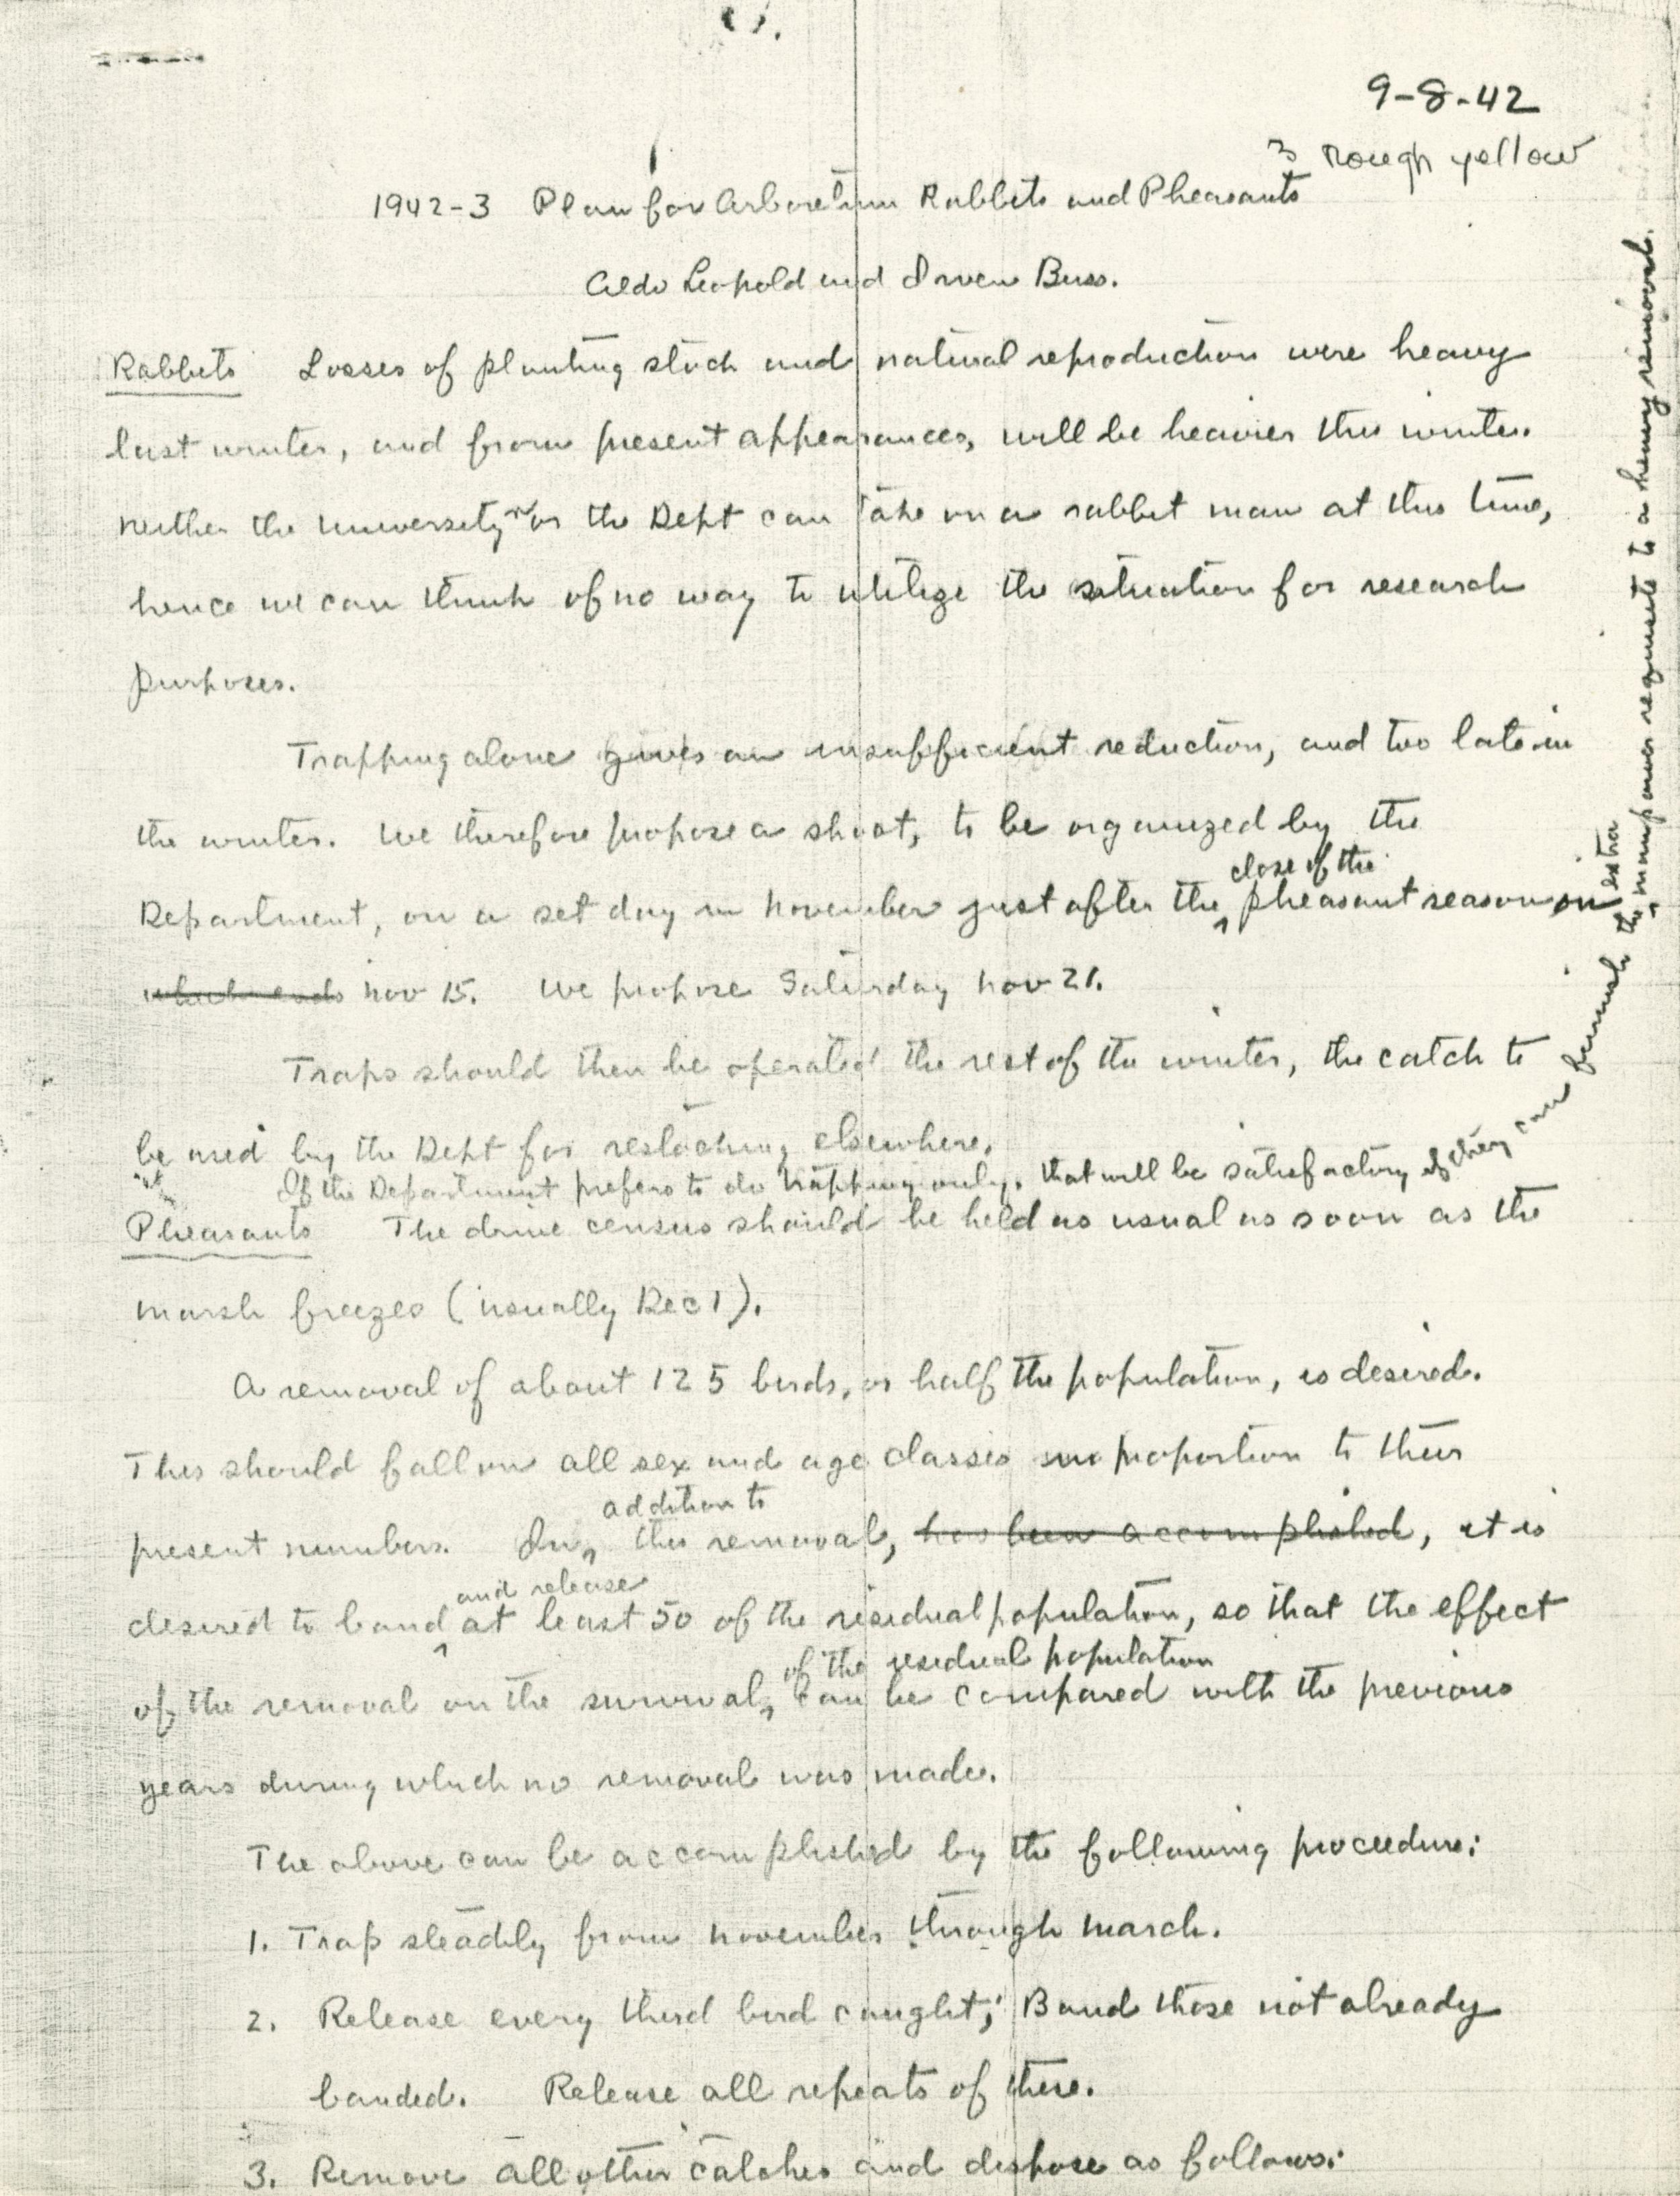 9-8-42
3 rough yellow
1942-3 Plan for Arboretum Rabbits and Pheasants
Aldo Leopold and Irven Buss.
Rabbits Losses of planting stock and natural reproduction were heavy
last winter, and from present appearances, will be heavier this winter.
Neither the University nor the Dept can take on a rabbit man at this time,
hence we can think of no way to utilize the situation for research
purposes.
Trapping alone gives an insufficient reduction, and too late in
the winter. We therefore propose a shoot, to be organized by the
close of the
Department, on a set day in November just after the pheasant season on
which ends Nov 15. We propose Saturday Nov 21.
Traps should then be operated the rest of the winter, the catch to
be used by the Dept for restocking elsewhere.
If the Department prefers to do trapping only, that will be satisfactory if they can furnish the extra manpower requisite to a heavy removal.
Pheasants The drive census should be held as usual as soon as the
marsh freezes (usually Dec 1).
A removal of about 125 birds, or half the population, is desired.
This should fall on all sex and age classes in proportion to their
addition to
present numbers. In this removal, has been accomplished, it is
and release
desired to band at least 50 of the residual population, so that the effect
of the residual population
of the removal on the survival can be compared with the previous
years during which no removal was made.
The above can be accomplished by the following proceedure:
1. Trap steadily from November through March.
2. Release every third bird caught; Band those not already
banded. Release all repeats of these.
3. Remove all other catches and dispose as follows: